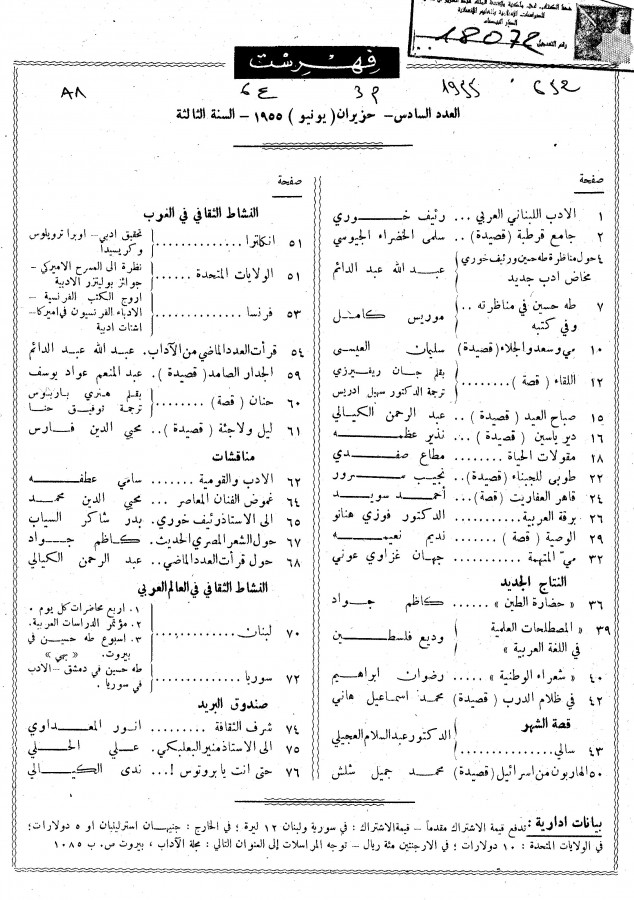 رقم التسجيل 18072
فهرست
٨٨ ع6 م3 1955 652
العدد السادس - حزيران ( يونيو ) ١٩٥٥ - السنة الثالثة
صفحة
١ الادب اللبناني العربي ... رئيف خـوري
٢ جامع قرطبة (قصيدة) .. سلمى الخضراء الجيوسي
٤ حول مناظرة طه حسين ورئيف خوري
مخاض ادب جديد
عبـد الله عبد الدائم
٧ طه حسين في مناظرته ..
وفي كتبه
موريس كامـل
١٠ مي وسعد والجلاء (قصيدة) سليمان العيسى
١٢ اللقاء ( قصة ) ........
بقلم جـان ريفيرزي
ترجمة الدكتور سهيل ادريس
١٥ صباح العيد ( قصيدة ) .. عبد الرحمن الكيالي
١٦ دير ياسين ( قصيدة ) .. نذير عظمـه
١٨ مقولات الحياة ......... مطاع صفـدي
٢٢ طوبى للجبناء (قصيدة) .. نجيب سـرور
٢٤ قاهر العفاريت (قصة) .. أحمـد سويـد
٢٦ برقة العربية .......... الدكتور فوزي هنانو
٢٩ الوصية ( قصة ) ....... نديم نعيمـه
٣٢ ميّ المتهمة ............ جهان غزاوي عوني
النتاج الجديد
٣٦ « حضارة الطين » ...... كاظم جـواد
٣٩ « المصطلحات العلمية
في اللغة العربية »
وديع فلسطيـن
٤٠ « شعراء الوطنية » ..... رضوان ابراهيم
٤٢ في ظلام الدرب ( قصيدة) محمد اسماعيل هاني
قصة الشهر
٤٣ سالي ..................
الدكتور عبدالسلام العجيلي
٥٠ الهاربون من اسرائيل (قصيدة) محمد جميل شلش
صفحة
النشاط الثقافي في الغرب
٥١ انكلترا ............
تحقيق ادبي - اوبرا ترويلوس
وكريسيدا
٥١ الولايات المتحدة ......
نظرة الى المسرح الاميركي -
جوائز بوليتزر الادبية
٥٣ فرنسا .............
اروج الكتب الفرنسية -
الادباء الفرنسيون في اميركا -
اشتات ادبية
٥٤ قرأت العدد الماضي من الآداب. عبـد الله عبـد الدائم
٥٩ الجدار الصامد (قصيدة) . عبد المنعم عواد يوسف
٦٠ حنان ( قصة ) ........
بقلم هنري باربوس
ترجمة توفيق حنـا
٦١ ليل ولاجئة ( قصيدة ) .. محيي الدين فـارس
مناقشات
٦٢ الادب والقومية ....... سامي عطفـه
٦٤ غموض الفنان المعاصر ... محيي الدين محمـد
٦٥ الى الاستاذ رئيف خوري. بدر شاكر السياب
٦٧ حول الشعر المصري الحديث. كاظم جـواد
٦٨ حول قرأت العدد الماضي.. عبد الرحمن الكيالي
النشاط الثقافي في العالم العربي
٧٠ لبنان ..............
١. اربع محاضرات كل يوم .
٢. مؤتمر الدراسات العربية.
٣. اسبوع طه حسيـن في
بيروت. « بي »
٧٢ سوريا ..............
طه حسين في دمشق - الادب
في سوريا .
صندوق البريد
٧٤ شرف الثقافة ......... انور المعـداوي
٧٥ الى الاستاذ منير البعلبكي. علي الحـلي
٧٦ حتى انت يا بروتوس !... ندى الكيـالي
بيانات ادارية : تدفع قيمة الاشتراك مقدماً - قيمة الاشتراك : في سورية ولبنان ١٢ ليرة ؛ في الخارج : جنيهان استرلينيان او ٥ دولارات ؛
في الولايات المتحدة : ١٠ دولارات ؛ في الارجنتين مئة ريال - توجه المراسلات إلى العنوان التالي : مجلة الآداب ، بيروت ص. ب ١٠٨٥